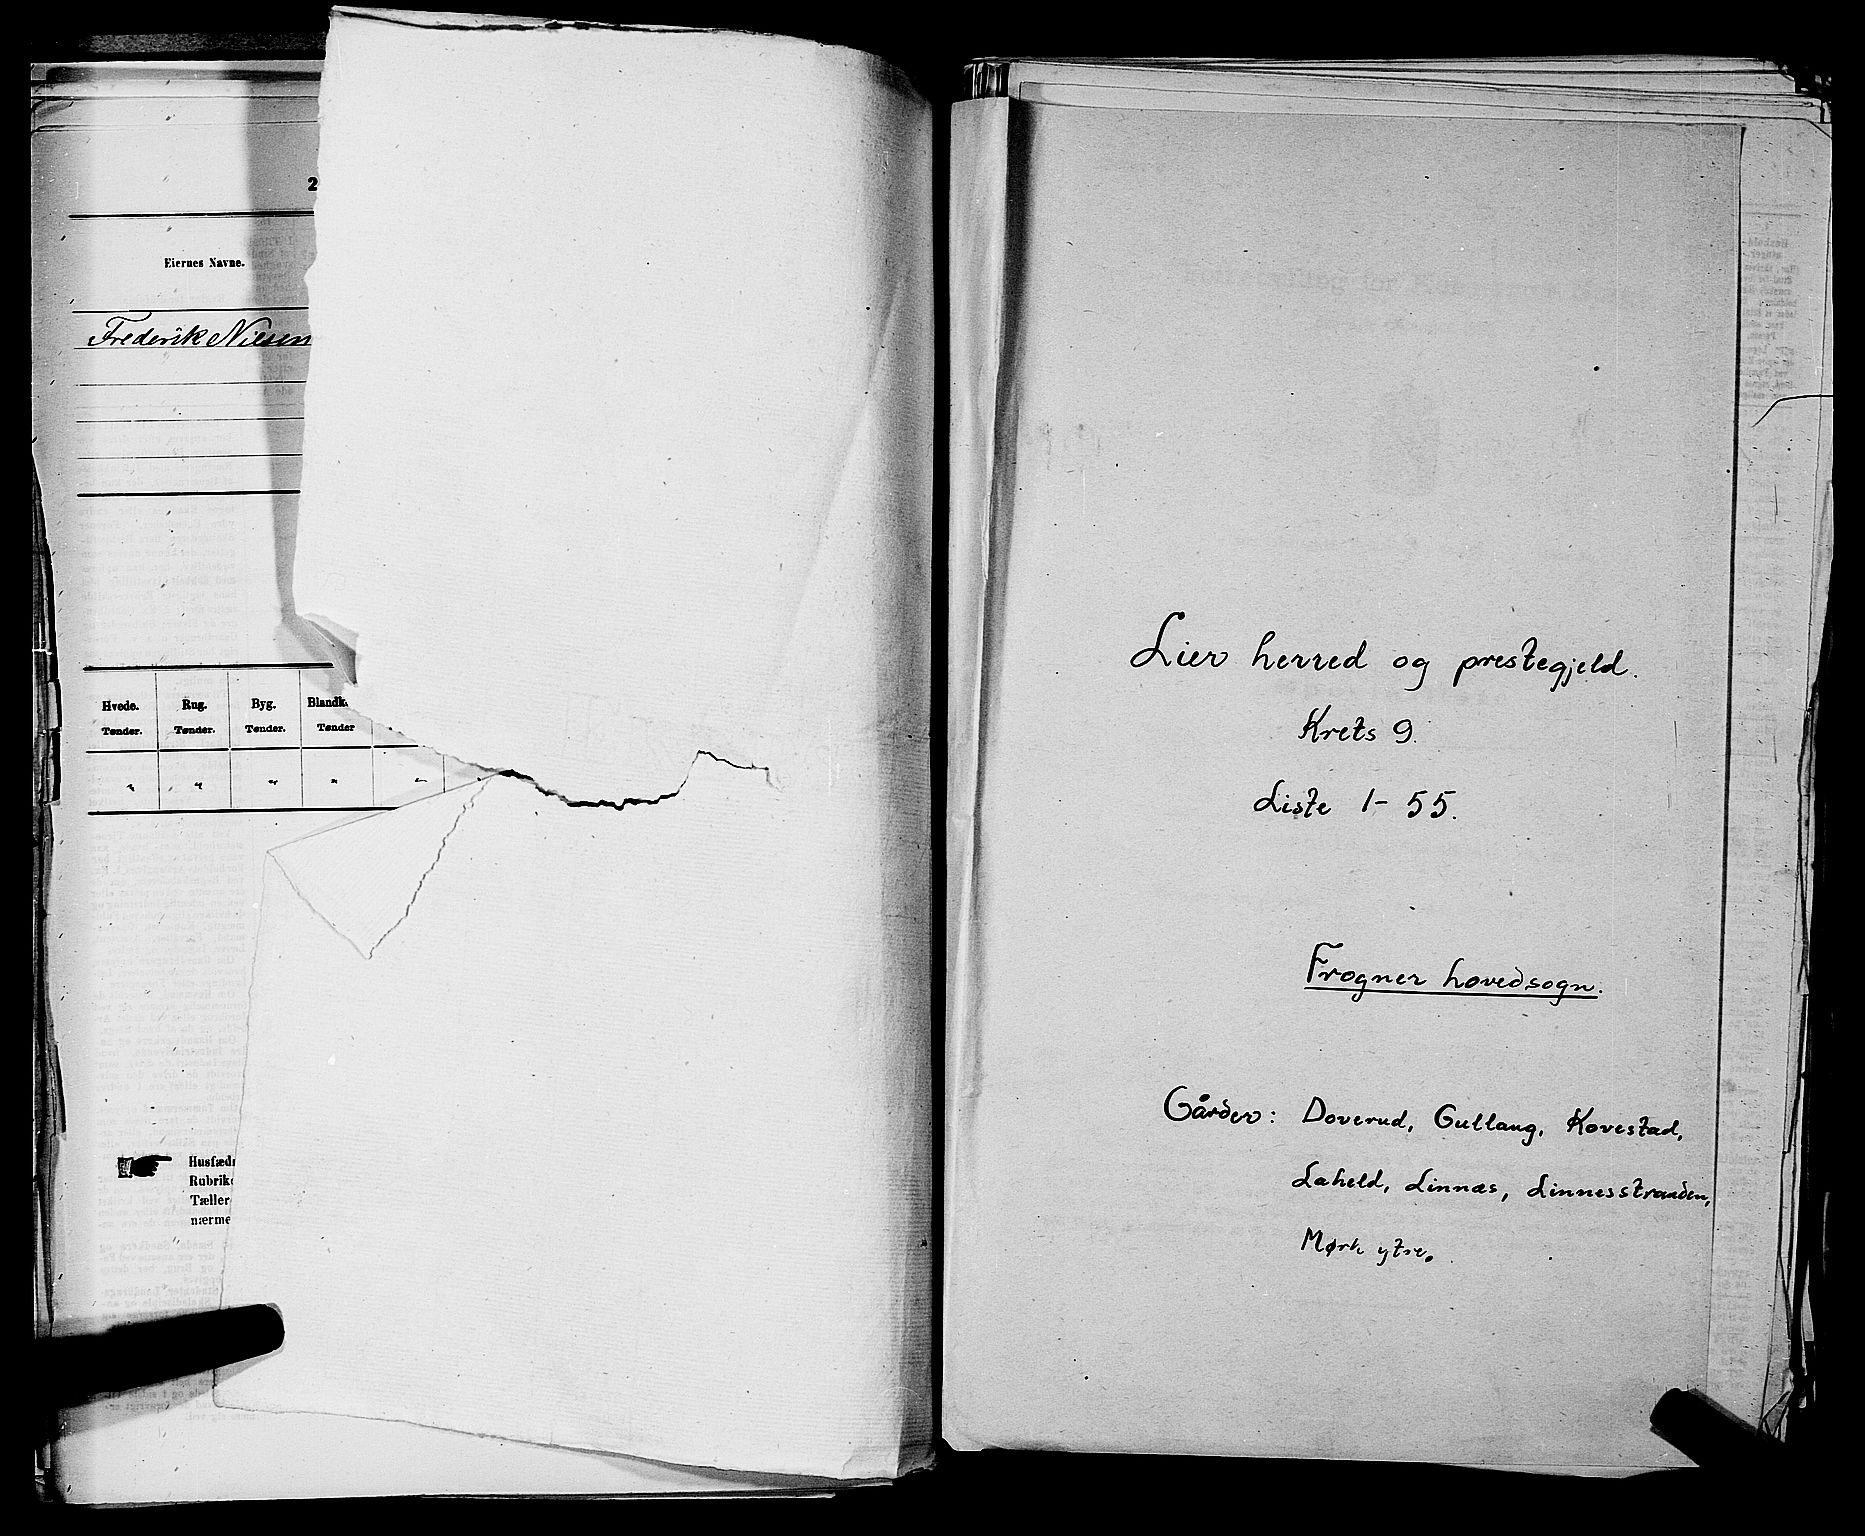 2
Eiernes Navne.
Frederik Nilsen
Hvede. Rug. Byg. Blandk.
Tønder. Tønder. Tønder. Tønder
" " " " "
Husfæd
Rubrik
Tæller
nærme
Lier herred og prestegjeld.
Krets 9.
Liste 1-55.
Frogner hovedsogn.
Gårder: Doverud, Gullaug, Kovestad,
Laheld, Linnæs, Linnesstranden,
Mørk ytre.